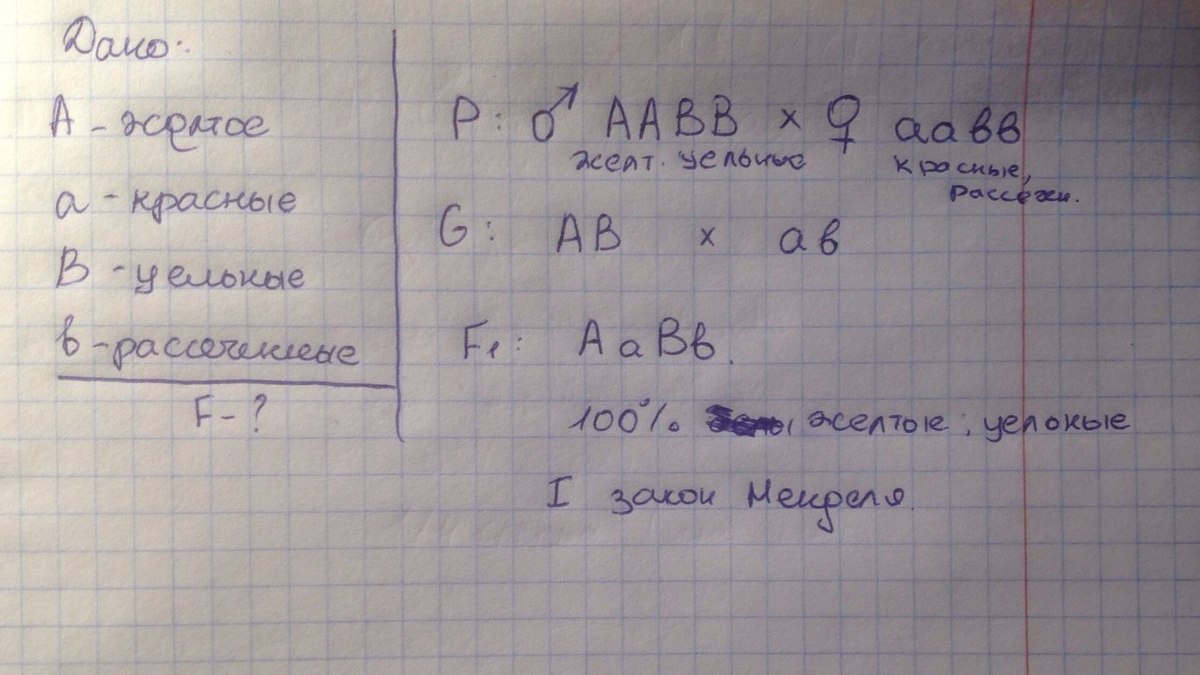 Дано:
А - желтое
а - красные
В - цельные
в - рассеченные
F - ?
P: ♂ ААВВ × ♀ аавв
желт. цельные красные,
рассечен.
G: АВ × ав
F1: АаВв.
100% желтые, цельные
I закон Менделя.